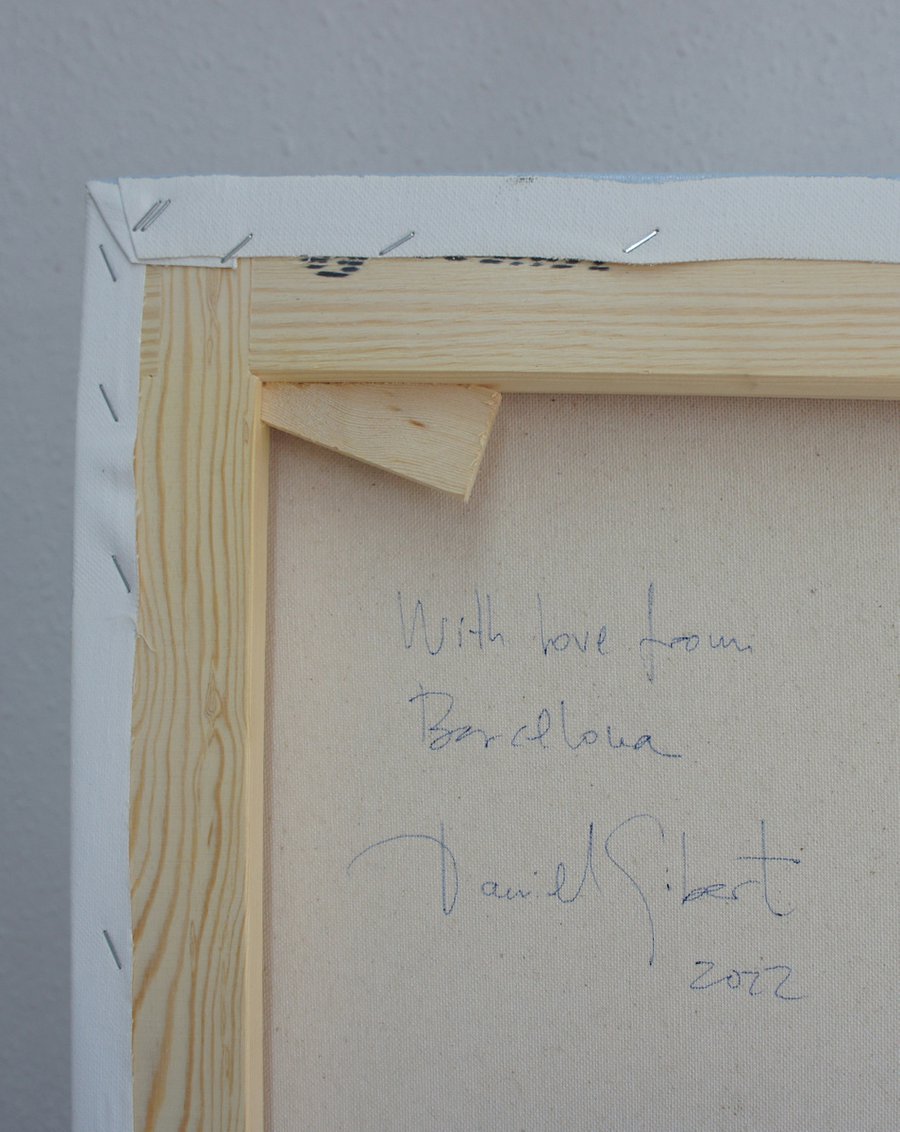 With love from
Barcelona
Daniel Gibert
2022